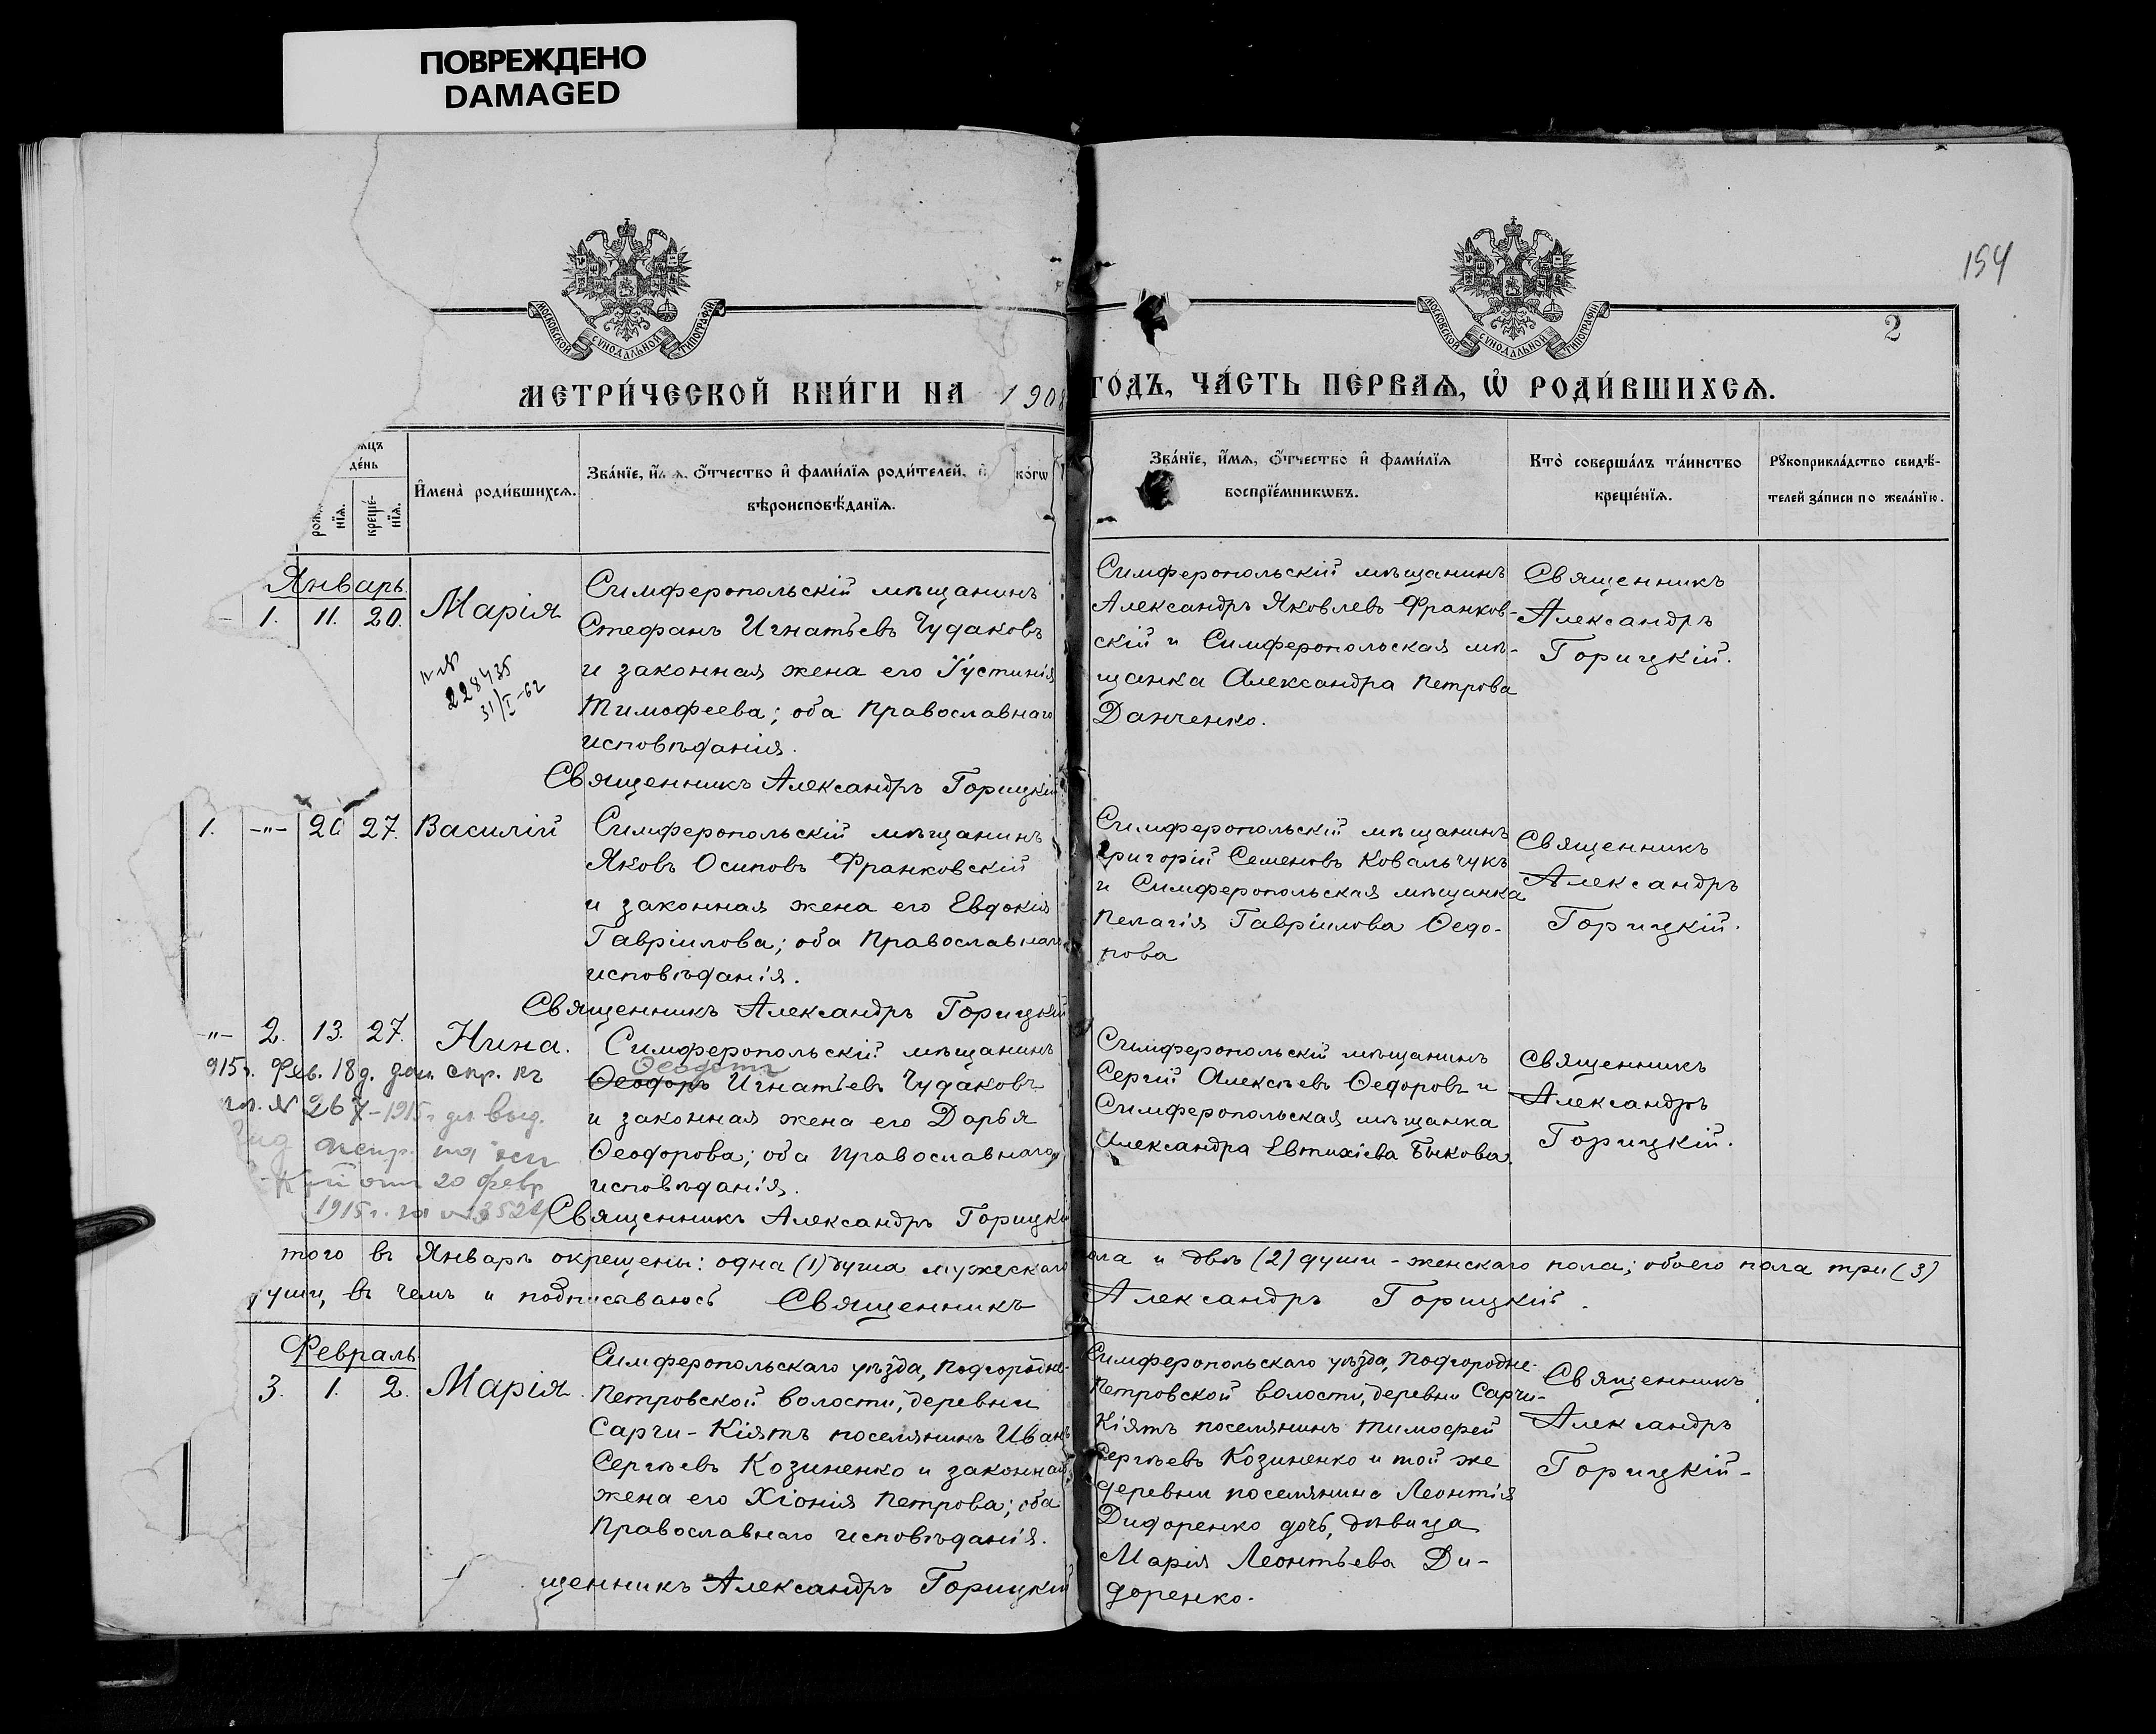 ПОВРЕЖДЕНО
DAMAGED
154
МОСКОВСКОЙ СѴНОДАЛЬНОЙ ТИПОГРАФІИ
МОСКОВСКОЙ СѴНОДАЛЬНОЙ ТИПОГРАФІИ
2
МЕТРИ́ЧЕСКОЙ КНИ́ГИ НА 1908
ГОДЪ, ЧА́СТЬ ПЕ́РВАѦ, Ѡ҆ РОДИ́ВШИХСѦ.
де́нь
креще́-
нїѧ.
нїѧ.
И҆мена̀ роди́вшихсѧ.
Зва́нїе, и҆мѧ, ѻ҆́тчество и҆ фами́лїѧ роди́телей, и҆ ко́гѡ
вѣроисповѣ́данїѧ.
Зва́нїе, и҆́мѧ, ѻ҆́тчество и҆ фами́лїѧ
воспрїе́мникѡвъ.
Кто̀ соверша́лъ та́инство
креще́нїѧ.
Рꙋкоприкла́дство свидѣ́-
телей за́писи по жела́нїю.
Январь.
1. 11. 20. Марія
Симферопольскій мѣщанинъ
Стефанъ Игнатьевъ Чудаковъ
и законная жена его Іустинія
Тимофеева; оба Православнаго
исповѣданія.
Священникъ Александръ Горицкій
№
228435
31/I-62
Симферопольскій мѣщанинъ
Александръ Яковлевъ Франков-
скій и Симферопольская мѣ-
щанка Александра Петрова
Данченко.
Священникъ
Александръ
Горицкій.
1. -"- 26 27. Василій
Симферопольскій мѣщанинъ
Яковъ Осиповъ Франковскій
и законная жена его Евдокія
Гавріилова; оба Православнаго
исповѣданія.
Священникъ Александръ Горицкій
Симферопольскій мѣщанинъ
Григорій Семеновъ Ковальчукъ
и Симферопольская мѣщанка
Пелагія Гавріилова Ѳедо-
рова
Священникъ
Александръ
Горицкій.
-"- 2. 13. 27. Нина.
Симферопольскій мѣщанинъ
Ѳеодотъ
Ѳеодоръ Игнатьевъ Чудаковъ
и законная жена его Дарья
Ѳеодорова; оба Православнаго
исповѣданія.
Священникъ Александръ Горицкій
915г. Фев. 18 д. спр. къ
№ 267-1915 г. для выд.
20 февр
1915 г. за № 3524
Симферопольскій мѣщанинъ
Сергій Алексѣевъ Ѳедоровъ и
Симферопольская мѣщанка
Александра Евтихіева Быкова.
Священникъ
Александръ
Горицкій.
того въ Январѣ окрещены: одна (1) душа мужескаго пола и двѣ (2) души - женскаго пола; обоего пола три (3)
души, въ чемъ и подписываюсь Священникъ Александръ Горицкій.
Февраль
3. 1. 2. Марія.
Симферопольскаго уѣзда, Подгородне-
Петровской волости, деревни
Сарчи-Кіятъ поселянинъ Иванъ
Сергѣевъ Козиненко и законная
жена его Хіонія Петрова; оба
Православнаго исповѣданія.
щенникъ Александръ Горицкій
Симферопольскаго уѣзда, Подгородне-
Петровской волости, деревни Сарчи-
Кіятъ поселянинъ Тимофей
Сергѣевъ Козиненко и той же
деревни поселянина Леонтія
Дидоренко дочь, дѣвица
Марія Леонтьева Ди-
доренко.
Священникъ
Александръ
Горицкій-